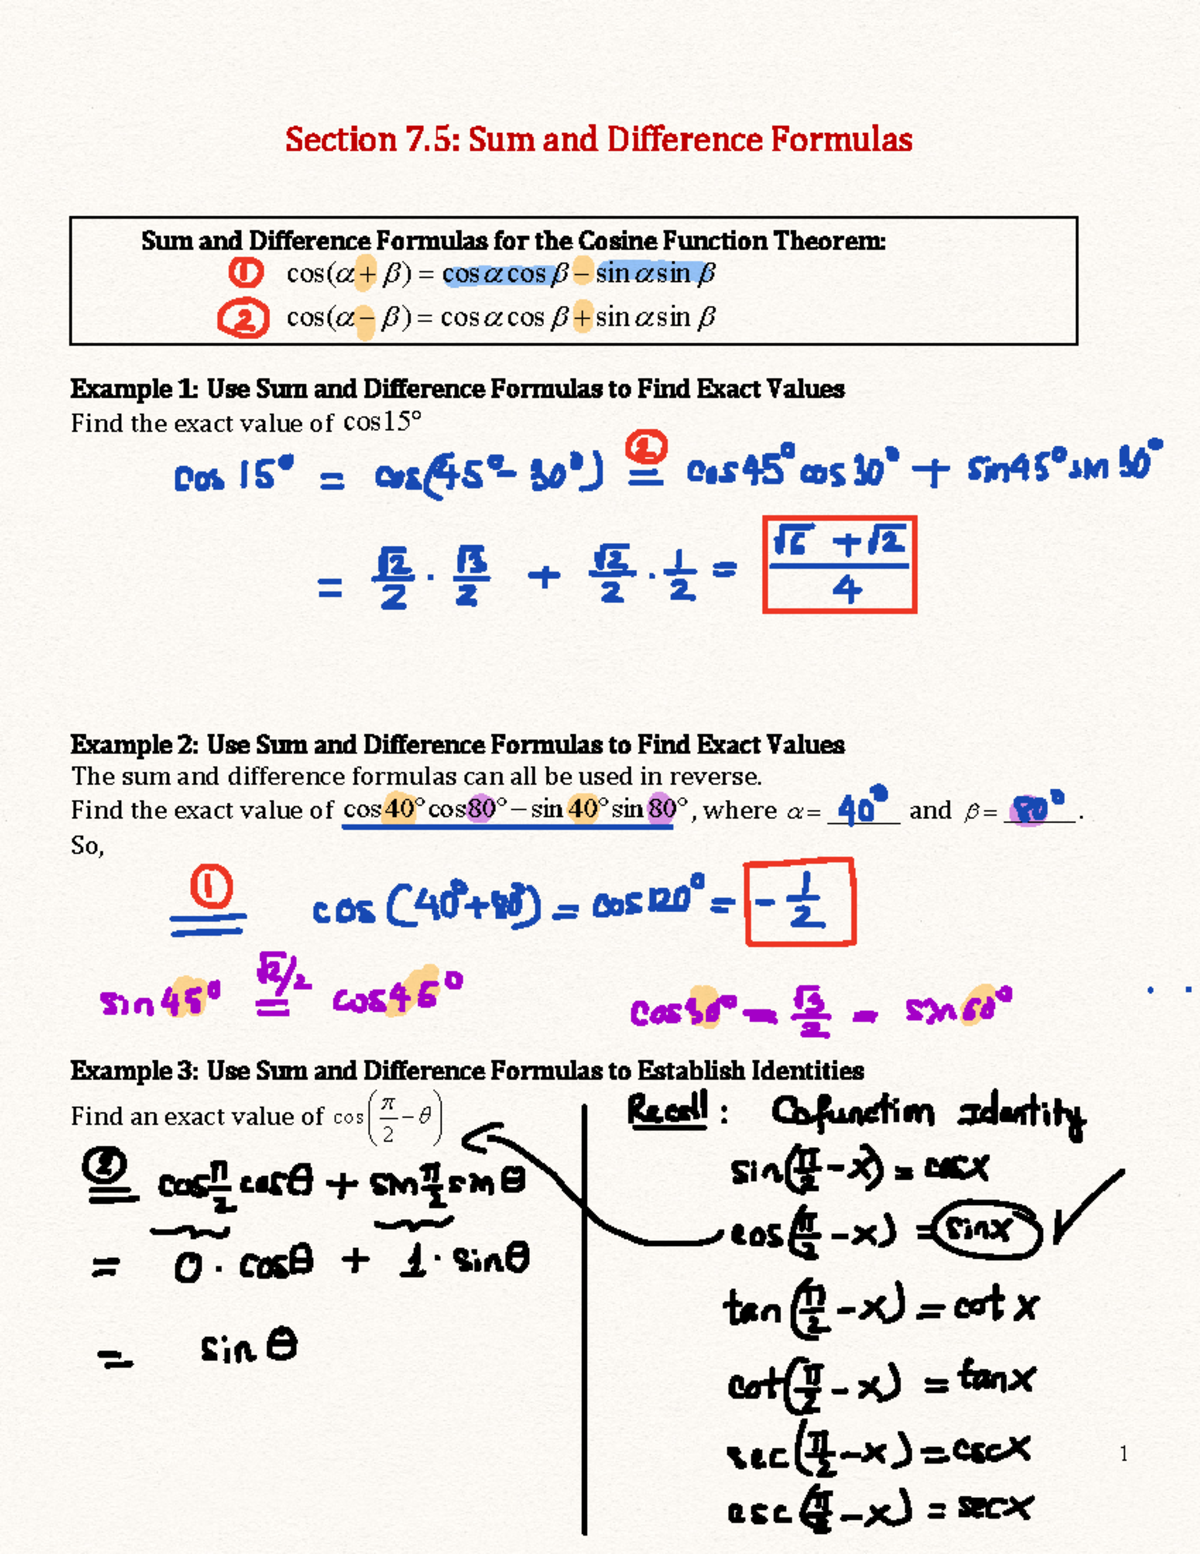 Section 7.5: Sum and Difference Formulas
Sum and Difference Formulas for the Cosine Function Theorem:
① cos(α + β) = cos α cos β − sin α sin β
② cos(α − β) = cos α cos β + sin α sin β
Example 1: Use Sum and Difference Formulas to Find Exact Values
Find the exact value of cos15°
cos 15° = cos(45° − 30°) =② cos45° cos 30° + sin45° sin 30°
= √2/2 · √3/2 + √2/2 · 1/2 = (√6 + √2)/4
Example 2: Use Sum and Difference Formulas to Find Exact Values
The sum and difference formulas can all be used in reverse.
Find the exact value of cos 40° cos 80° − sin 40° sin 80°, where α = 40° and β = 80°.
So,
① = cos (40° + 80°) = cos 120° = −1/2
sin 45° =√2/2 cos 45° cos 30° = √3/2 = sin 60°
Example 3: Use Sum and Difference Formulas to Establish Identities
Find an exact value of cos(π/2 − θ)
② = cos π/2 cos θ + sin π/2 sin θ
= 0 · cos θ + 1 · sin θ
= sin θ
Recall: Cofunction Identity
sin(π/2 − x) = cos x
cos(π/2 − x) = sin x ✓
tan(π/2 − x) = cot x
cot(π/2 − x) = tan x
sec(π/2 − x) = csc x
csc(π/2 − x) = sec x
1